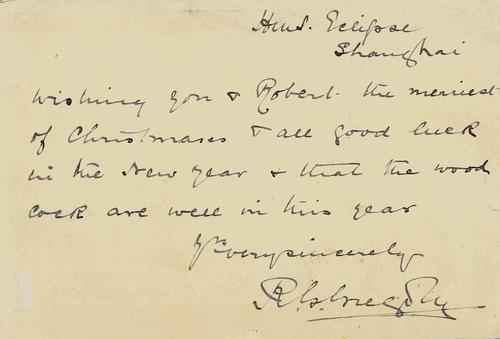 H.M.S. Eclipse
Shanghai
Wishing you & Robert the merriest
of Christmases & all good luck
in the New Year & that the wood
cock are well in this year
Yrs very sincerely